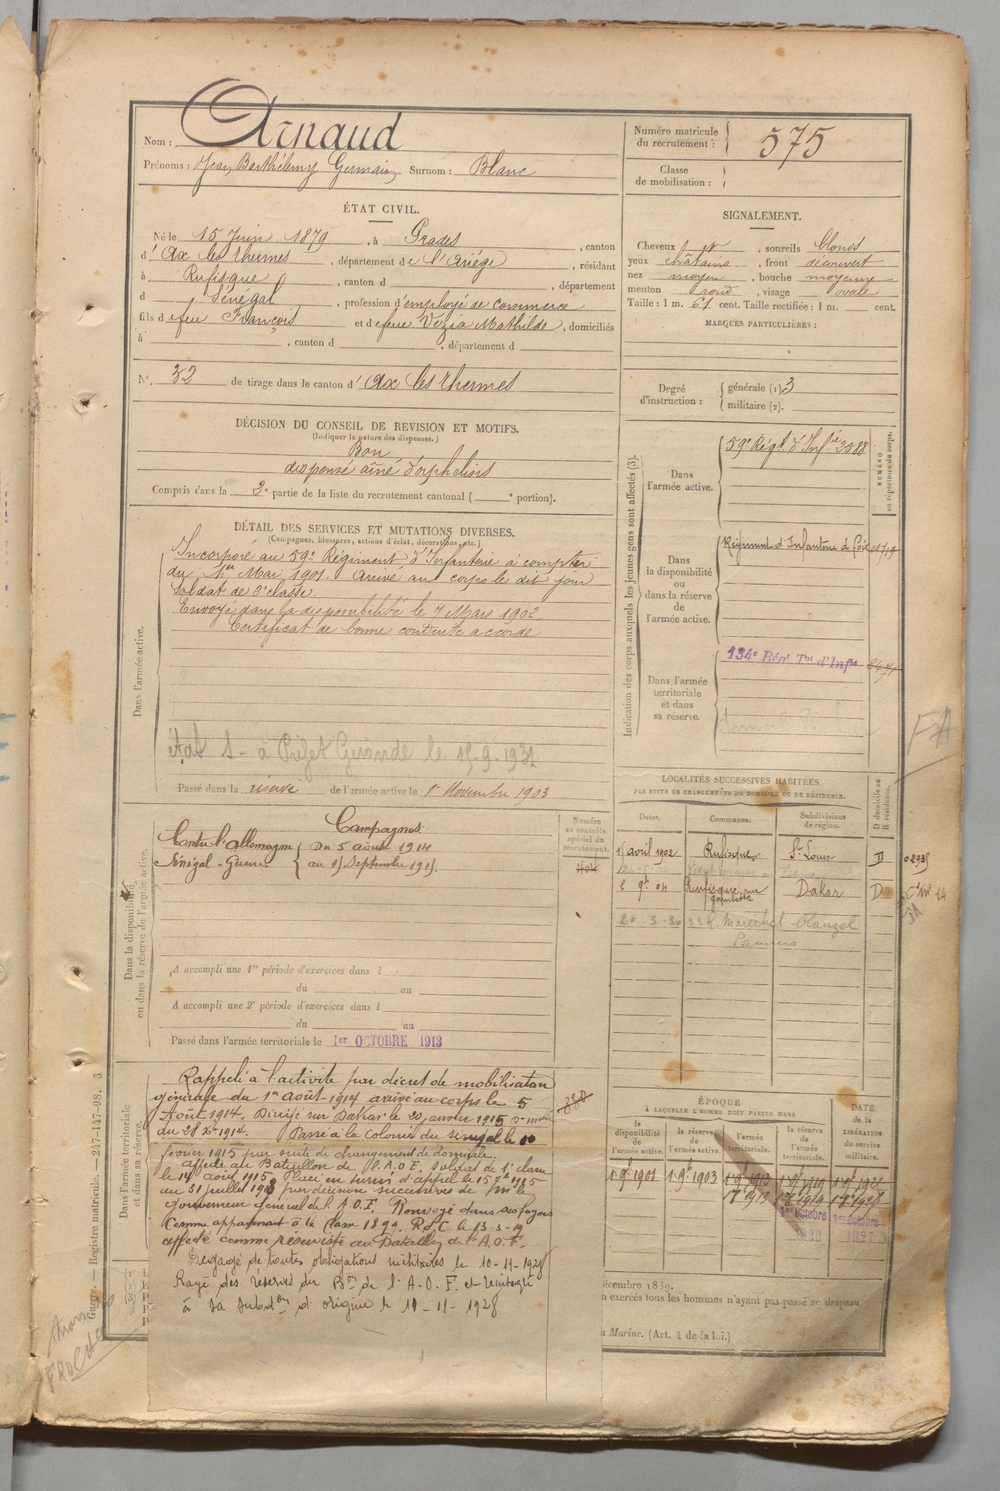 Nom : Arnaud
Prénoms : Jean Barthélemy Germain Surnom : Blanc
Numéro matricule du recrutement : 575
Classe de mobilisation :
ÉTAT CIVIL.
Né le 15 Juin 1879, à Prades, canton
d' Ax les Thermes, département de l'Ariège, résidant
à Rufisque, canton d , département
d Sénégal, profession d'employé de commerce
fils de feu François et de feue Vézia Mathilde, domiciliés
à , canton d , département d
N° 32 de tirage dans le canton d' Ax les Thermes
SIGNALEMENT.
Cheveux et , sourcils blonds
yeux châtains , front découvert
nez moyen , bouche moyenne
menton rond , visage ovale
Taille : 1 m. 61 cent. Taille rectifiée : 1 m. cent.
MARQUES PARTICULIÈRES :
Degré d'instruction : générale (1) 3
militaire (2).
DÉCISION DU CONSEIL DE REVISION ET MOTIFS.
(Indiquer la nature des dispenses.)
Bon
dispensé aîné d'orphelins
Compris dans la 2e partie de la liste du recrutement cantonal ( e portion).
DÉTAIL DES SERVICES ET MUTATIONS DIVERSES.
(Campagnes, blessures, actions d'éclat, décorations, etc.)
Dans l'armée active.
Incorporé au 59e Régiment d'Infanterie à compter
du 1er Mai 1901. Arrivé au corps le dit jour
Soldat de 2e classe.
Envoyé dans la disponibilité le 7 Mars 1902.
Certificat de bonne conduite accordé
état S - à Préfet Gironde le 15-9-1931
Passé dans la réserve de l'armée active le 1er Novembre 1903
Indication des corps auxquels les jeunes gens sont affectés (3).
Dans l'armée active.
59e Régt d'Infie 3588
NUMÉRO au répertoire du corps.
Dans la disponibilité ou dans la réserve de l'armée active.
Régiment d'Infanterie de Foix
Dans l'armée territoriale et dans sa réserve.
134e Régt Tal d'Infie
LOCALITÉS SUCCESSIVES HABITÉES
PAR SUITE DE CHANGEMENTS DE DOMICILE OU DE RÉSIDENCE.
Dates. Communes. Subdivisions de région. D domicile ou R résidence.
15 avril 1902 Rufisque St Louis D
Rufisque Dakar D
20-3-30 33 R. Maréchal Clauzel
Pamiers
Dans la disponibilité ou dans la réserve de l'armée active.
Campagnes.
Contre l'Allemagne Du 5 août 1914
Sénégal-Guerre au 15 Septembre 1915.
Numéro au contrôle spécial du recrutement.
A accompli une 1re période d'exercices dans l
du au
A accompli une 2e période d'exercices dans l
du au
Passé dans l'armée territoriale le 1er OCTOBRE 1913
Dans l'armée territoriale et dans sa réserve.
Rappelé à l'activité par décret de mobilisation
générale du 1er Août 1914 arrivé au corps le 5
Août 1914. Dirigé sur Dakar le 20 janvier 1915
du 28 Xbre 1914. Passé à la colonie du Sénégal le 10
février 1915 par suite de changement de domicile.
Affecté au Bataillon de l'A.O.F. Soldat de 1e classe
le 14 août 1915. Placé en sursis d'appel le 15 7bre 1915
au 31 juillet 1918 par décisions successives de Mr le
gouverneur général de l'A.O.F. Renvoyé dans ses foyers
comme appartenant à la classe 1899. RdC le 13-3-19
affecté comme réserviste au Bataillon de l'A.O.F.
Dégagé de toutes obligations militaires le 10-11-1928
Rayé des réserves du Bon de l'A.O.F. et réintégré
à sa subdon d'origine le 10-11-1928
ÉPOQUE
À LAQUELLE L'HOMME DOIT PASSER DANS
la disponibilité de l'armée active. la réserve de l'armée active. l'armée territoriale. la réserve de l'armée territoriale. DATE de la LIBÉRATION du service militaire.
1 9bre 1901 1 9bre 1903
écembre 1889.
n exercés tous les hommes n'ayant pas passé au drapeau
a Marine. (Art. 4 de la loi.)
Guerre. — Registre matricule. — 217-147-98. 3